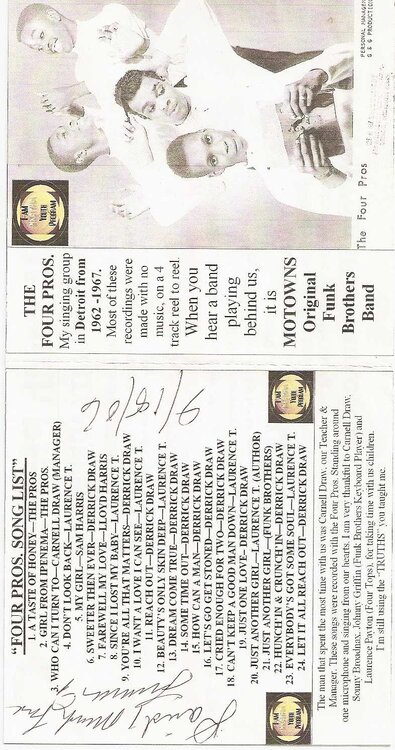 PERSONAL MANAGEMENT
G & G PRODUCTION
The Four Pros
I AM
YOUTH
PROGRAM
THE
FOUR PROS.
My singing group
in Detroit from
1962 -1967.
Most of these
recordings were
made with no
music, on a 4
track reel to reel.
When you
hear a band
playing
behind us,
it is
MOTOWNS
Original
Funk
Brothers
Band
"FOUR PROS. SONG LIST"
1. A TASTE OF HONEY---THE PROS
2. GIRL FROM IPENEMA---THE PROS
3. WHO CAN I TURN TO---CARNELL DRAW (MANAGER)
4. DON'T LOOK BACK---LAURENCE T.
5. MY GIRL---SAM HARRIS
6. SWEETER THEN EVER---DERRICK DRAW
7. FAREWELL MY LOVE---LLOYD HARRIS
8. SINCE I LOST MY BABY---LAURENCE T.
9. YOU'RE ALL THAT MATTERS---DERRICK DRAW
10. I WANT A LOVE I CAN SEE---LAURENCE T.
11. REACH OUT---DERRICK DRAW
12. BEAUTY'S ONLY SKIN DEEP---LAURENCE T.
13. DREAM COME TRUE---DERRICK DRAW
14. SOME TIME OUT---DERRICK DRAW
15. HOW CAN A MAN---DERRICK DRAW
16. LET'S GO GET STONED---DERRICK DRAW
17. CRIED ENOUGH FOR TWO---DERRICK DRAW
18. CAN'T KEEP A GOOD MAN DOWN---LAURENCE T.
19. JUST ONE LOVE- DERRICK DRAW
20. JUST ANOTHER GIRL---LAURENCE T. (AUTHOR)
21. JUST ANOTHER GIRL---(FUNK BROTHERS)
22. HUNCH'IN & CRUNCH'IN---DERRICK DRAW
23. EVERYBODY'S GOT SOME SOUL---LAURENCE T.
24. LET IT ALL REACH OUT---DERRICK DRAW
9/18/06
I AM
YOUTH
PROGRAM
I AM
YOUTH
PROGRAM
The man that spent the most time with us was Carnell Draw, our Teacher &
Manager. These songs were recorded with the Four Pros. Standing around
one microphone and singing from our hearts. I am very thankful to Carnell Draw,
Sonny Broadnex, Johnny Griffin (Funk Brothers Keyboard Player) and
Laurence Payton (Four Tops), for taking time with us children.
I'm still using the "TRUTHS" you taught me.